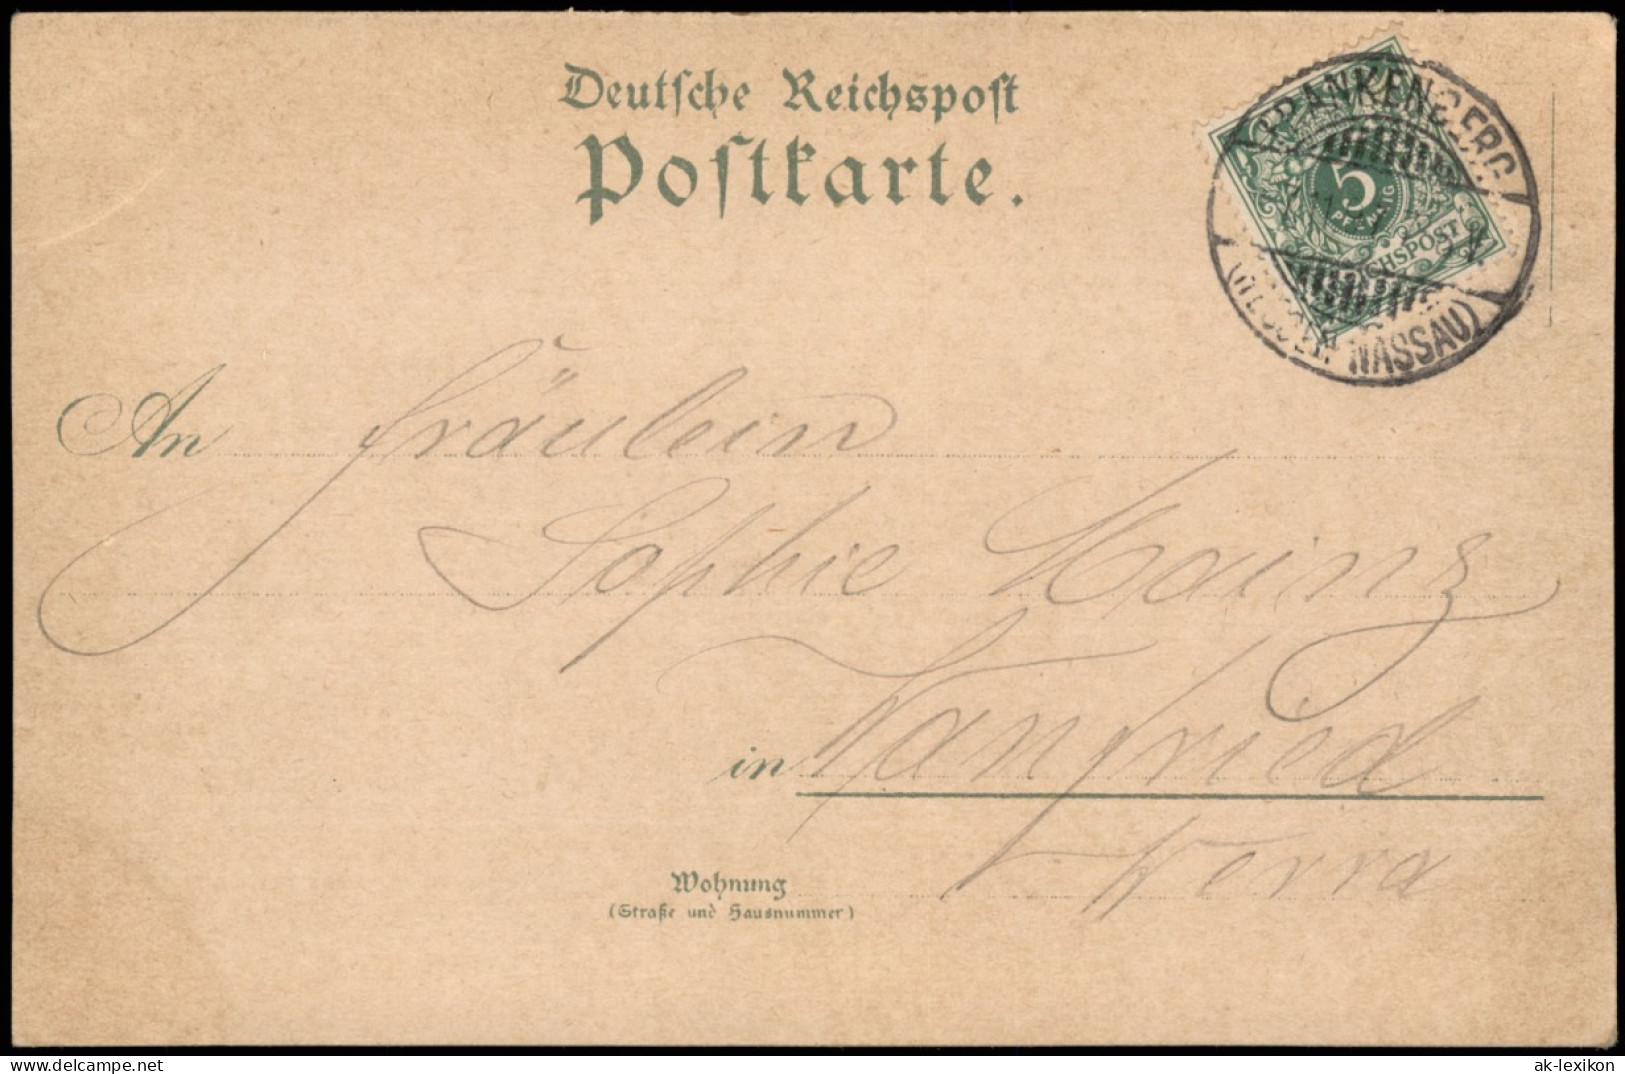 Deutsche Reichspost
Postkarte.
FRANKENBERG
5
PFENNIG
REICHSPOST
(HESSEN-NASSAU)
An Fräulein
Sophie Hainz
in Wanfried
Werra
Wohnung
(Straße und Hausnummer)
www.delcampe.net
ak-lexikon